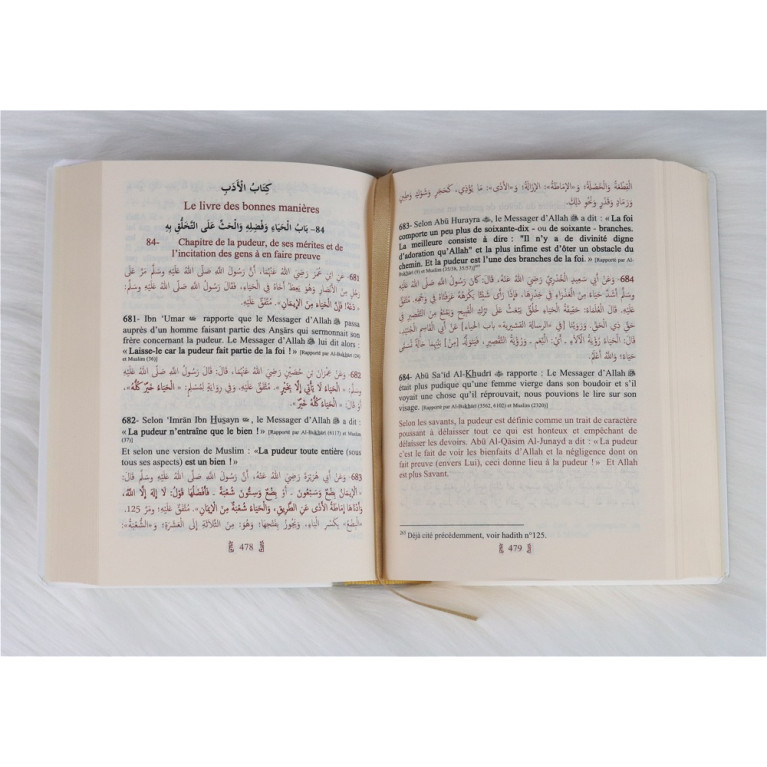 كِتَابُ الْأَدَبِ
Le livre des bonnes manières
84- بَابُ الْحَيَاءِ وَفَضْلِهِ وَالْحَثِّ عَلَى التَّخَلُّقِ بِهِ
84- Chapitre de la pudeur, de ses mérites et de
l'incitation des gens à en faire preuve
681- عَنِ ابْنِ عُمَرَ رَضِيَ اللَّهُ عَنْهُمَا، أَنَّ رَسُولَ اللَّهِ صَلَّى اللَّهُ عَلَيْهِ وَسَلَّمَ مَرَّ عَلَى
رَجُلٍ مِنَ الْأَنْصَارِ وَهُوَ يَعِظُ أَخَاهُ فِي الْحَيَاءِ، فَقَالَ رَسُولُ اللَّهِ صَلَّى اللَّهُ عَلَيْهِ وَسَلَّمَ:
«دَعْهُ؛ فَإِنَّ الْحَيَاءَ مِنَ الْإِيمَانِ». مُتَّفَقٌ عَلَيْهِ.
681- Ibn 'Umar ﷺ rapporte que le Messager d'Allah ﷺ passa
auprès d'un homme faisant partie des Ansârs qui sermonnait son
frère concernant la pudeur. Le Messager d'Allah ﷺ lui dit alors :
« Laisse-le car la pudeur fait partie de la foi ! » [Rapporté par Al-Bukhârî (24)
et Muslim (36)]
682- وَعَنْ عِمْرَانَ بْنِ حُصَيْنٍ رَضِيَ اللَّهُ عَنْهُمَا، قَالَ: قَالَ رَسُولُ اللَّهِ صَلَّى اللَّهُ عَلَيْهِ وَسَلَّمَ:
«الْحَيَاءُ لَا يَأْتِي إِلَّا بِخَيْرٍ». مُتَّفَقٌ عَلَيْهِ. وَفِي رِوَايَةٍ لِمُسْلِمٍ: «الْحَيَاءُ خَيْرٌ كُلُّهُ»
أَوْ قَالَ: «الْحَيَاءُ كُلُّهُ خَيْرٌ».
682- Selon 'Imrân Ibn Husayn, le Messager d'Allah ﷺ a dit :
« La pudeur n'entraîne que le bien ! » [Rapporté par Al-Bukhârî (6117) et Muslim
(37)]
Et selon une version de Muslim : «La pudeur toute entière (sous
tous ses aspects) est un bien ! »
683- وَعَنْ أَبِي هُرَيْرَةَ رَضِيَ اللَّهُ عَنْهُ، أَنَّ رَسُولَ اللَّهِ صَلَّى اللَّهُ عَلَيْهِ وَسَلَّمَ قَالَ:
«الْإِيمَانُ بِضْعٌ وَسَبْعُونَ ـ أَوْ بِضْعٌ وَسِتُّونَ شُعْبَةً ـ فَأَفْضَلُهَا قَوْلُ: لَا إِلَهَ إِلَّا اللَّهُ،
وَأَدْنَاهَا إِمَاطَةُ الْأَذَى عَنِ الطَّرِيقِ، وَالْحَيَاءُ شُعْبَةٌ مِنَ الْإِيمَانِ». مُتَّفَقٌ عَلَيْهِ؛ وَمَرَّ 125.
«الْبِضْعُ» بِكَسْرِ الْبَاءِ، وَيَجُوزُ بِفَتْحِهَا؛ وَهُوَ: مِنَ الثَّلَاثَةِ إِلَى الْعَشَرَةِ؛ وَ«الشُّعْبَةُ»:
478
الْقِطْعَةُ وَالْخَصْلَةُ؛ وَ«الْإِمَاطَةُ»: الْإِزَالَةُ؛ وَ«الْأَذَى»: مَا يُؤْذِي، كَحَجَرٍ وَشَوْكٍ وَطِينٍ
وَرَمَادٍ وَقَذَرٍ وَنَحْوِ ذَلِكَ.
683- Selon Abû Hurayra, le Messager d'Allah ﷺ a dit : « La foi
comporte un peu plus de soixante-dix - ou de soixante - branches.
La meilleure consiste à dire : "Il n'y a de divinité digne
d'adoration qu'Allah" et la plus infime est d'ôter un obstacle du
chemin. Et la pudeur est l'une des branches de la foi. [Rapporté par Al-Bukhârî
(9) et Muslim (35/58, 35/57)]
684- وَعَنْ أَبِي سَعِيدٍ الْخُدْرِيِّ رَضِيَ اللَّهُ عَنْهُ، قَالَ: كَانَ رَسُولُ اللَّهِ صَلَّى اللَّهُ عَلَيْهِ
وَسَلَّمَ أَشَدَّ حَيَاءً مِنَ الْعَذْرَاءِ فِي خِدْرِهَا، فَإِذَا رَأَى شَيْئًا يَكْرَهُهُ عَرَفْنَاهُ فِي وَجْهِهِ. مُتَّفَقٌ
عَلَيْهِ. قَالَ الْعُلَمَاءُ: حَقِيقَةُ الْحَيَاءِ خُلُقٌ يَبْعَثُ عَلَى تَرْكِ الْقَبِيحِ وَيَمْنَعُ مِنَ التَّقْصِيرِ فِي
حَقِّ ذِي الْحَقِّ. وَرَوَيْنَا [فِي «الرِّسَالَةِ الْقُشَيْرِيَّةِ» بَابِ الْحَيَاءِ] عَنْ أَبِي الْقَاسِمِ الْجُنَيْدِ،
قَالَ: الْحَيَاءُ رُؤْيَةُ الْآلَاءِ ـ أَيْ: النِّعَمِ ـ وَرُؤْيَةُ التَّقْصِيرِ، فَيَتَوَلَّدُ [مِنْ] بَيْنِهِمَا حَالَةٌ تُسَمَّى
حَيَاءً؛ وَاللَّهُ أَعْلَمُ.
684- Abû Sa'îd Al-Khudrî rapporte : Le Messager d'Allah ﷺ
était plus pudique qu'une femme vierge dans son boudoir et s'il
voyait une chose qu'il réprouvait, nous pouvions le lire sur son
visage. [Rapporté par Al-Bukhârî (3562, 6102) et Muslim (2320)]
Selon les savants, la pudeur est définie comme un trait de caractère
poussant à délaisser tout ce qui est honteux et empêchant de
délaisser les devoirs. Abû Al-Qâsim Al-Junayd a dit : « La pudeur
c'est le fait de voir les bienfaits d'Allah et la négligence dont on
fait preuve (envers Lui), ceci donne lieu à la pudeur ! » Et Allah
est plus Savant.
Déjà cité précédemment, voir hadith n°125.
479